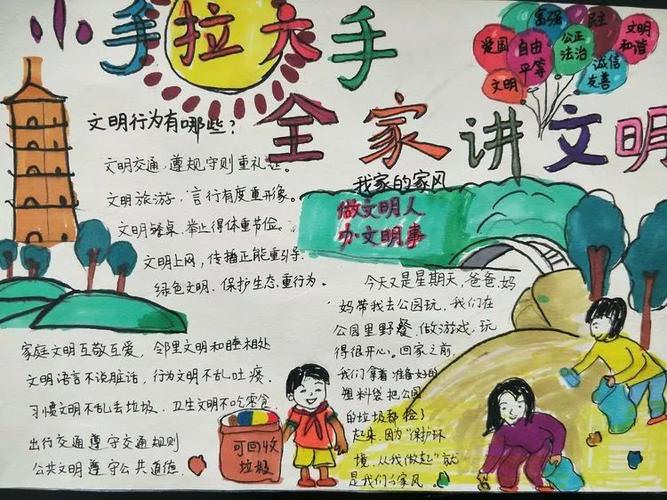 小手拉大手
全家讲文明
爱国
富强
民主
文明
和谐
自由
平等
公正
法治
诚信
友善
文明
文明行为有哪些？
文明交通，遵规守则重礼让。
文明旅游，言行有度重形象。
文明餐桌，举止得体重节俭。
文明上网，传播正能重引导。
绿色文明，保护生态重行为。
家庭文明互敬互爱，邻里文明和睦相处
文明语言不说脏话，行为文明不乱吐痰，
习惯文明不乱丢垃圾，卫生文明不吃零食
出行交通遵守交通规则
公共文明遵守公共道德
可回收
垃圾
我家的家风
做文明人
办文明事
今天又是星期天，爸爸，妈
妈带我去公园玩，我们在
公园里野餐，做游戏，玩
得很开心。回家之前，
我们拿着准备好的
塑料袋把公园
的垃圾都捡了
起来，因为“保护环
境，从我做起”就
是我们的家风。